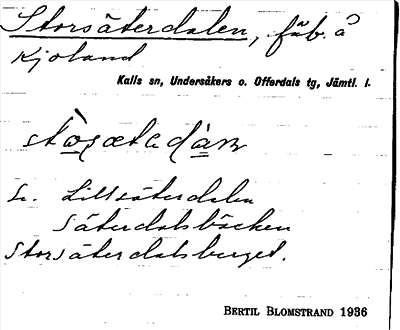 Storsäterdalen, fäb. å
Kjoland
Kalls sn, Undersåkers o. Offerdals tg, Jämtl. l.
Se. Lillsäterdalen
Säterdalsbäcken
Storsäterdalsberget.
BERTIL BLOMSTRAND 1936